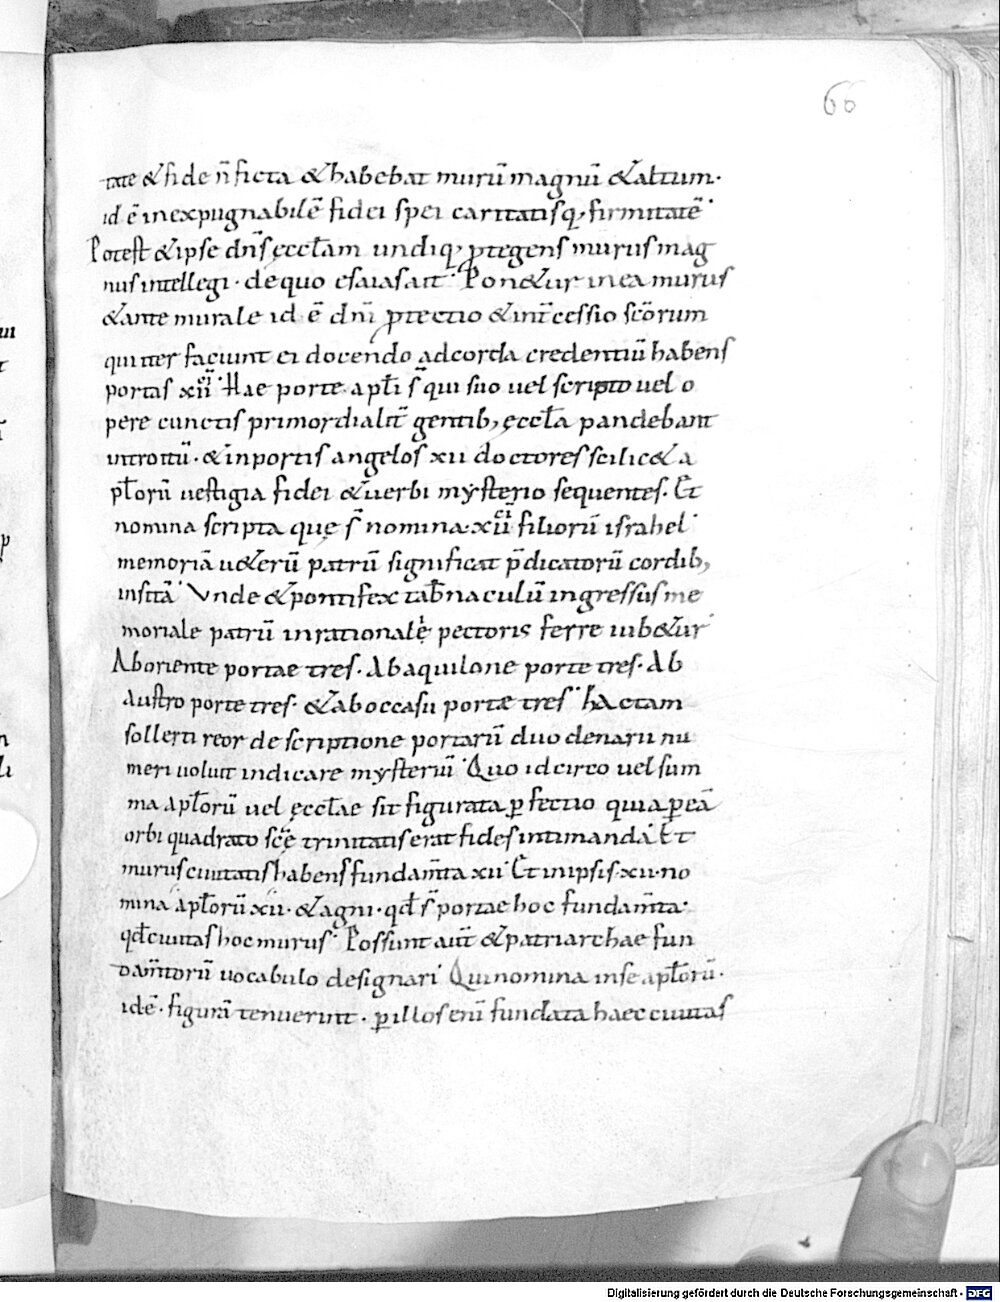 66
tate & fide n̄ ficta & habebat murū magnū & altum·
id ē inexpugnabilē fidei spei caritatisq; firmitatē
Potest & ipse dn̄s ęccl̄am undiq; ꝓtegens murus mag
nus intellegi · de quo esaias ait Pon&ur in ea murus
& ante murale id ē dn̄i ꝓtectio & int̄cessio sc̄orum
qui iter faciunt ei docendo ad corda credentiū habens
portas xii Hae porte apl̄i s̄ qui suo uel scripto uel o
pere cunctis primordialit̄ gentib; ęccl̄a pandebant
introitū · & in portis angelos xii doctores scilic& a
pl̄orū uestigia fidei & uerbi mysterio sequentes. Et
nomina scripta quę s̄ nomina xii filiorū israhel
memoriā u&erū patrū significat p̄dicatorū cordib;
insitā Vnde & pontifex tab̄naculū ingressus me
moriale patrū in rationale pectoris ferre iub&ur
Ab oriente portae tres. Ab aquilone porte tres. Ab
austro porte tres. & ab occasu portæ tres hac tam
sollerti reor descriptione portarū duodenarii nu
meri uoluit indicare mysteriū Quo idcirco uel sum
ma apl̄orū uel ęccl̄ae sit figurata ꝑfectio quia ꝑ eā
orbi quadrato sc̄ę trinitatis erat fides intimanda Et
murus ciuitatis habens fundam̄ta xii Et in ipsis xii no
mina apl̄orū xii · & agni · qd̄ s̄ portae hoc fundam̄ta·
qd̄ ciuitas hoc murus Possunt aut̄ & patriarchae fun
dam̄torū uocabulo designari Qui nomina in se apl̄orū·
id ē · figurā tenuerunt · ꝑ illos enī fundata haec ciuitas
Digitalisierung gefördert durch die Deutsche Forschungsgemeinschaft - DFG